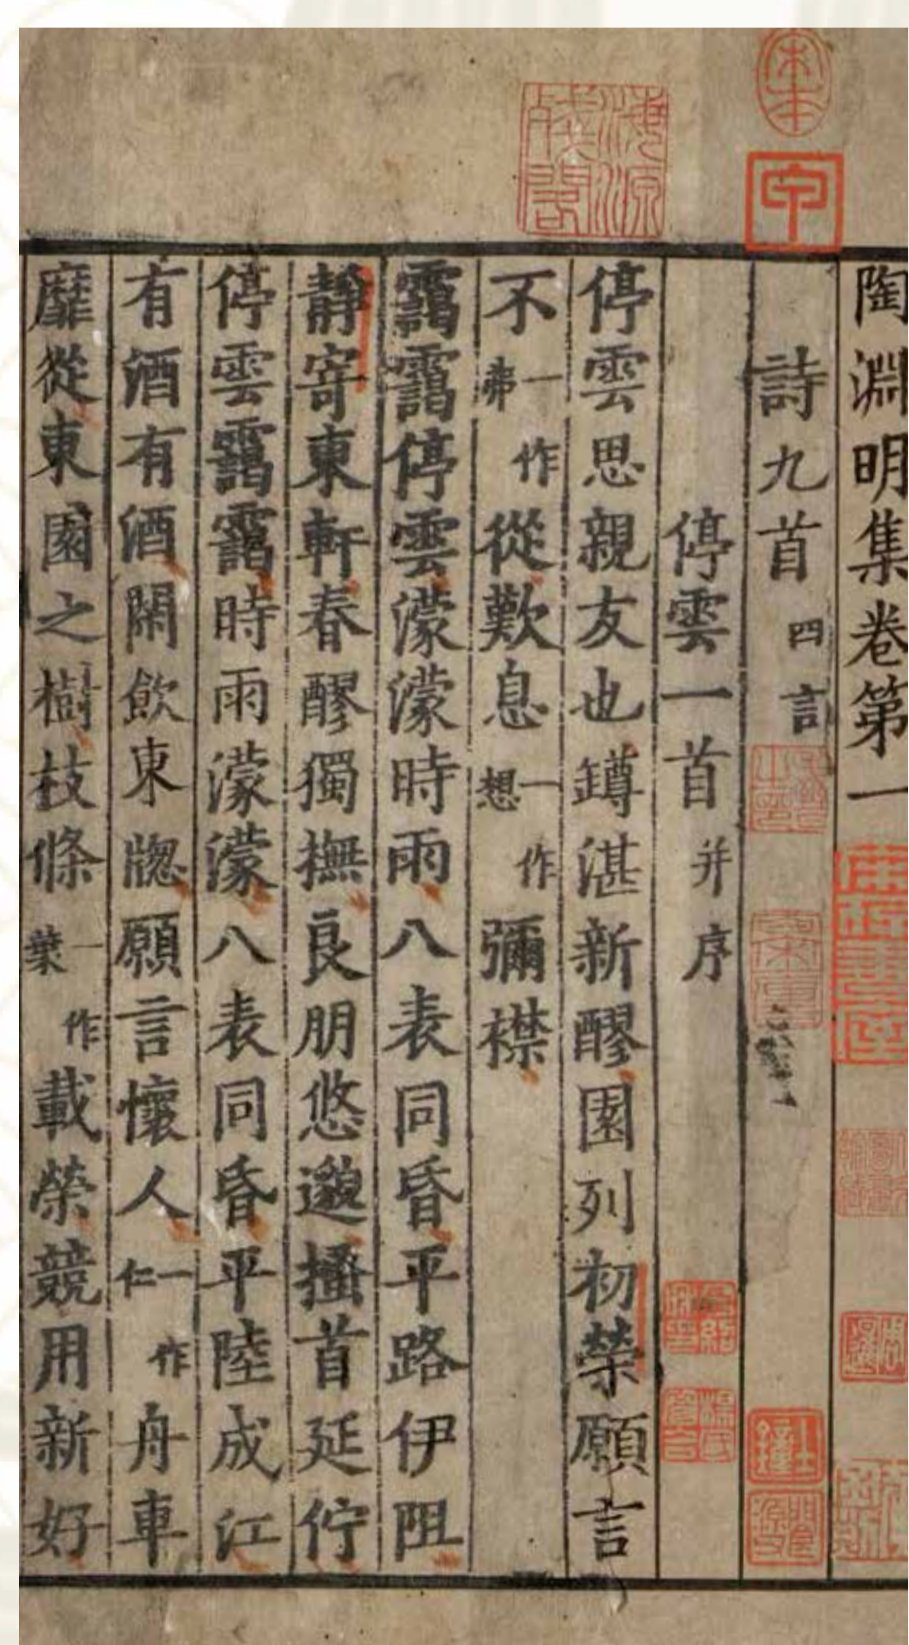 宋本
甲
海源殘閣
陶淵明集卷第一
詩九首四言
停雲一首并序
停雲思親友也鐏湛新醪園列初榮願言
不一作弗從歎息一作想彌襟
靄靄停雲濛濛時雨八表同昏平路伊阻
靜寄東軒春醪獨撫良朋悠邈搔首延佇
停雲靄靄時雨濛濛八表同昏平陸成江
有酒有酒閑飲東牎願言懷人一作仁舟車
靡從東園之樹枝條一作葉載榮競用新好